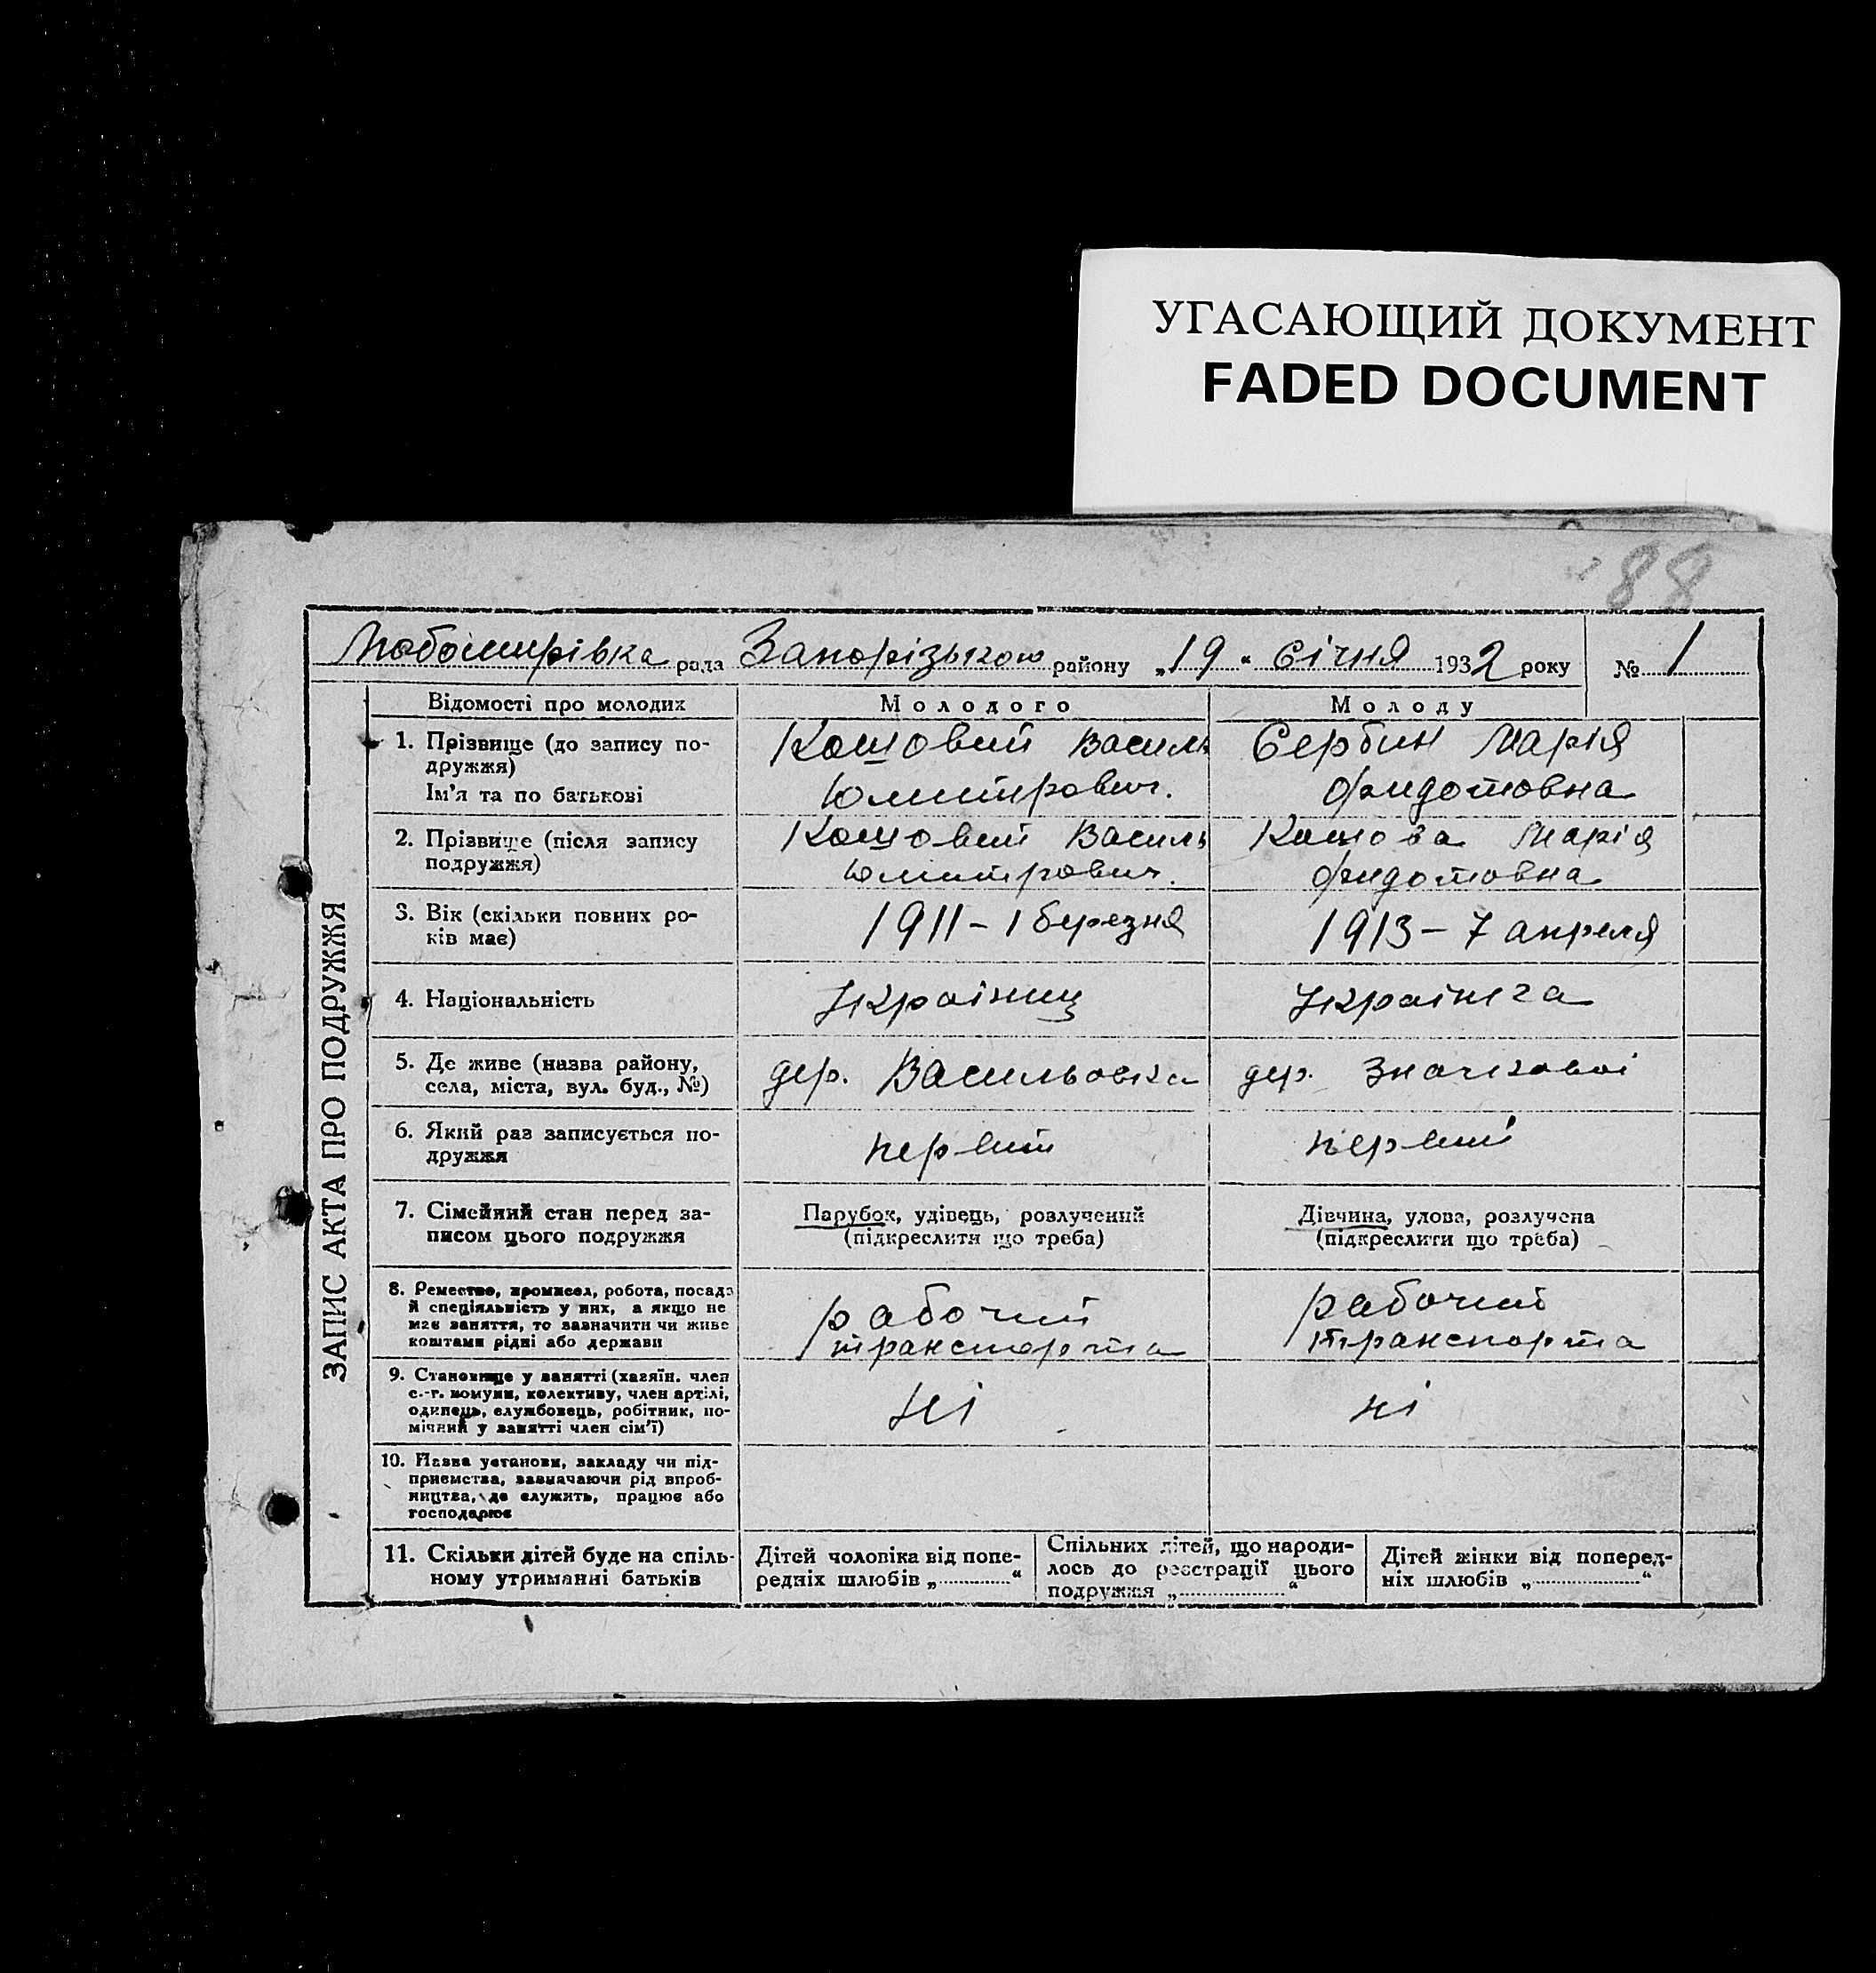 УГАСАЮЩИЙ ДОКУМЕНТ
FADED DOCUMENT
88
Любомирівка рада Запорізького району „19“ Січня 1932 року № 1
ЗАПИС АКТА ПРО ПОДРУЖЖЯ
Відомості про молодих
Молодого
Молоду
1. Прізвище (до запису по-
дружжя)
Ім'я та по батькові
Кошовий Василь
Юлитрович.
Сербин Марія
Фидотовна
2. Прізвище (після запису
подружжя)
Кошовий Василь
Юлитрович.
Кошова Марія
Фидотовна
3. Вік (скільки повних ро-
ків має)
1911 – 1 березня
1913 – 7 апреля
4. Національність
Українец
Українка
5. Де живе (назва району,
села, міста, вул. буд., №)
дер. Васильовка
дер.
6. Який раз записується по-
дружжя
первий
первий
7. Сімейний стан перед за-
писом цього подружжя
Парубок, удівець, розлучений
(підкреслити що треба)
Дівчина, удова, розлучена
(підкреслити що треба)
8. Ремество, промисел, робота, посада
й спеціяльність у них, а якщо не
має заняття, то зазначити чи живе
коштами рідні або держави
рабочий
транспорта
рабочий
транспорта
9. Становище у занятті (хазяїн, член
с.-г. комуни, колективу, член артілі,
одинець, службовець, робітник, по-
мічний у занятті член сім'ї)
ні
ні
10. Назва установи, закладу чи під-
приємства, зазначаючи рід вироб-
ництва, де служить, працює або
господарює
11. Скільки дітей буде на спіль-
ному утриманні батьків
Дітей чоловіка від попе-
редніх шлюбів „..............“
Спільних дітей, що народи-
лось до реєстрації цього
подружжя „..............“
Дітей жінки від поперед-
ніх шлюбів „..............“